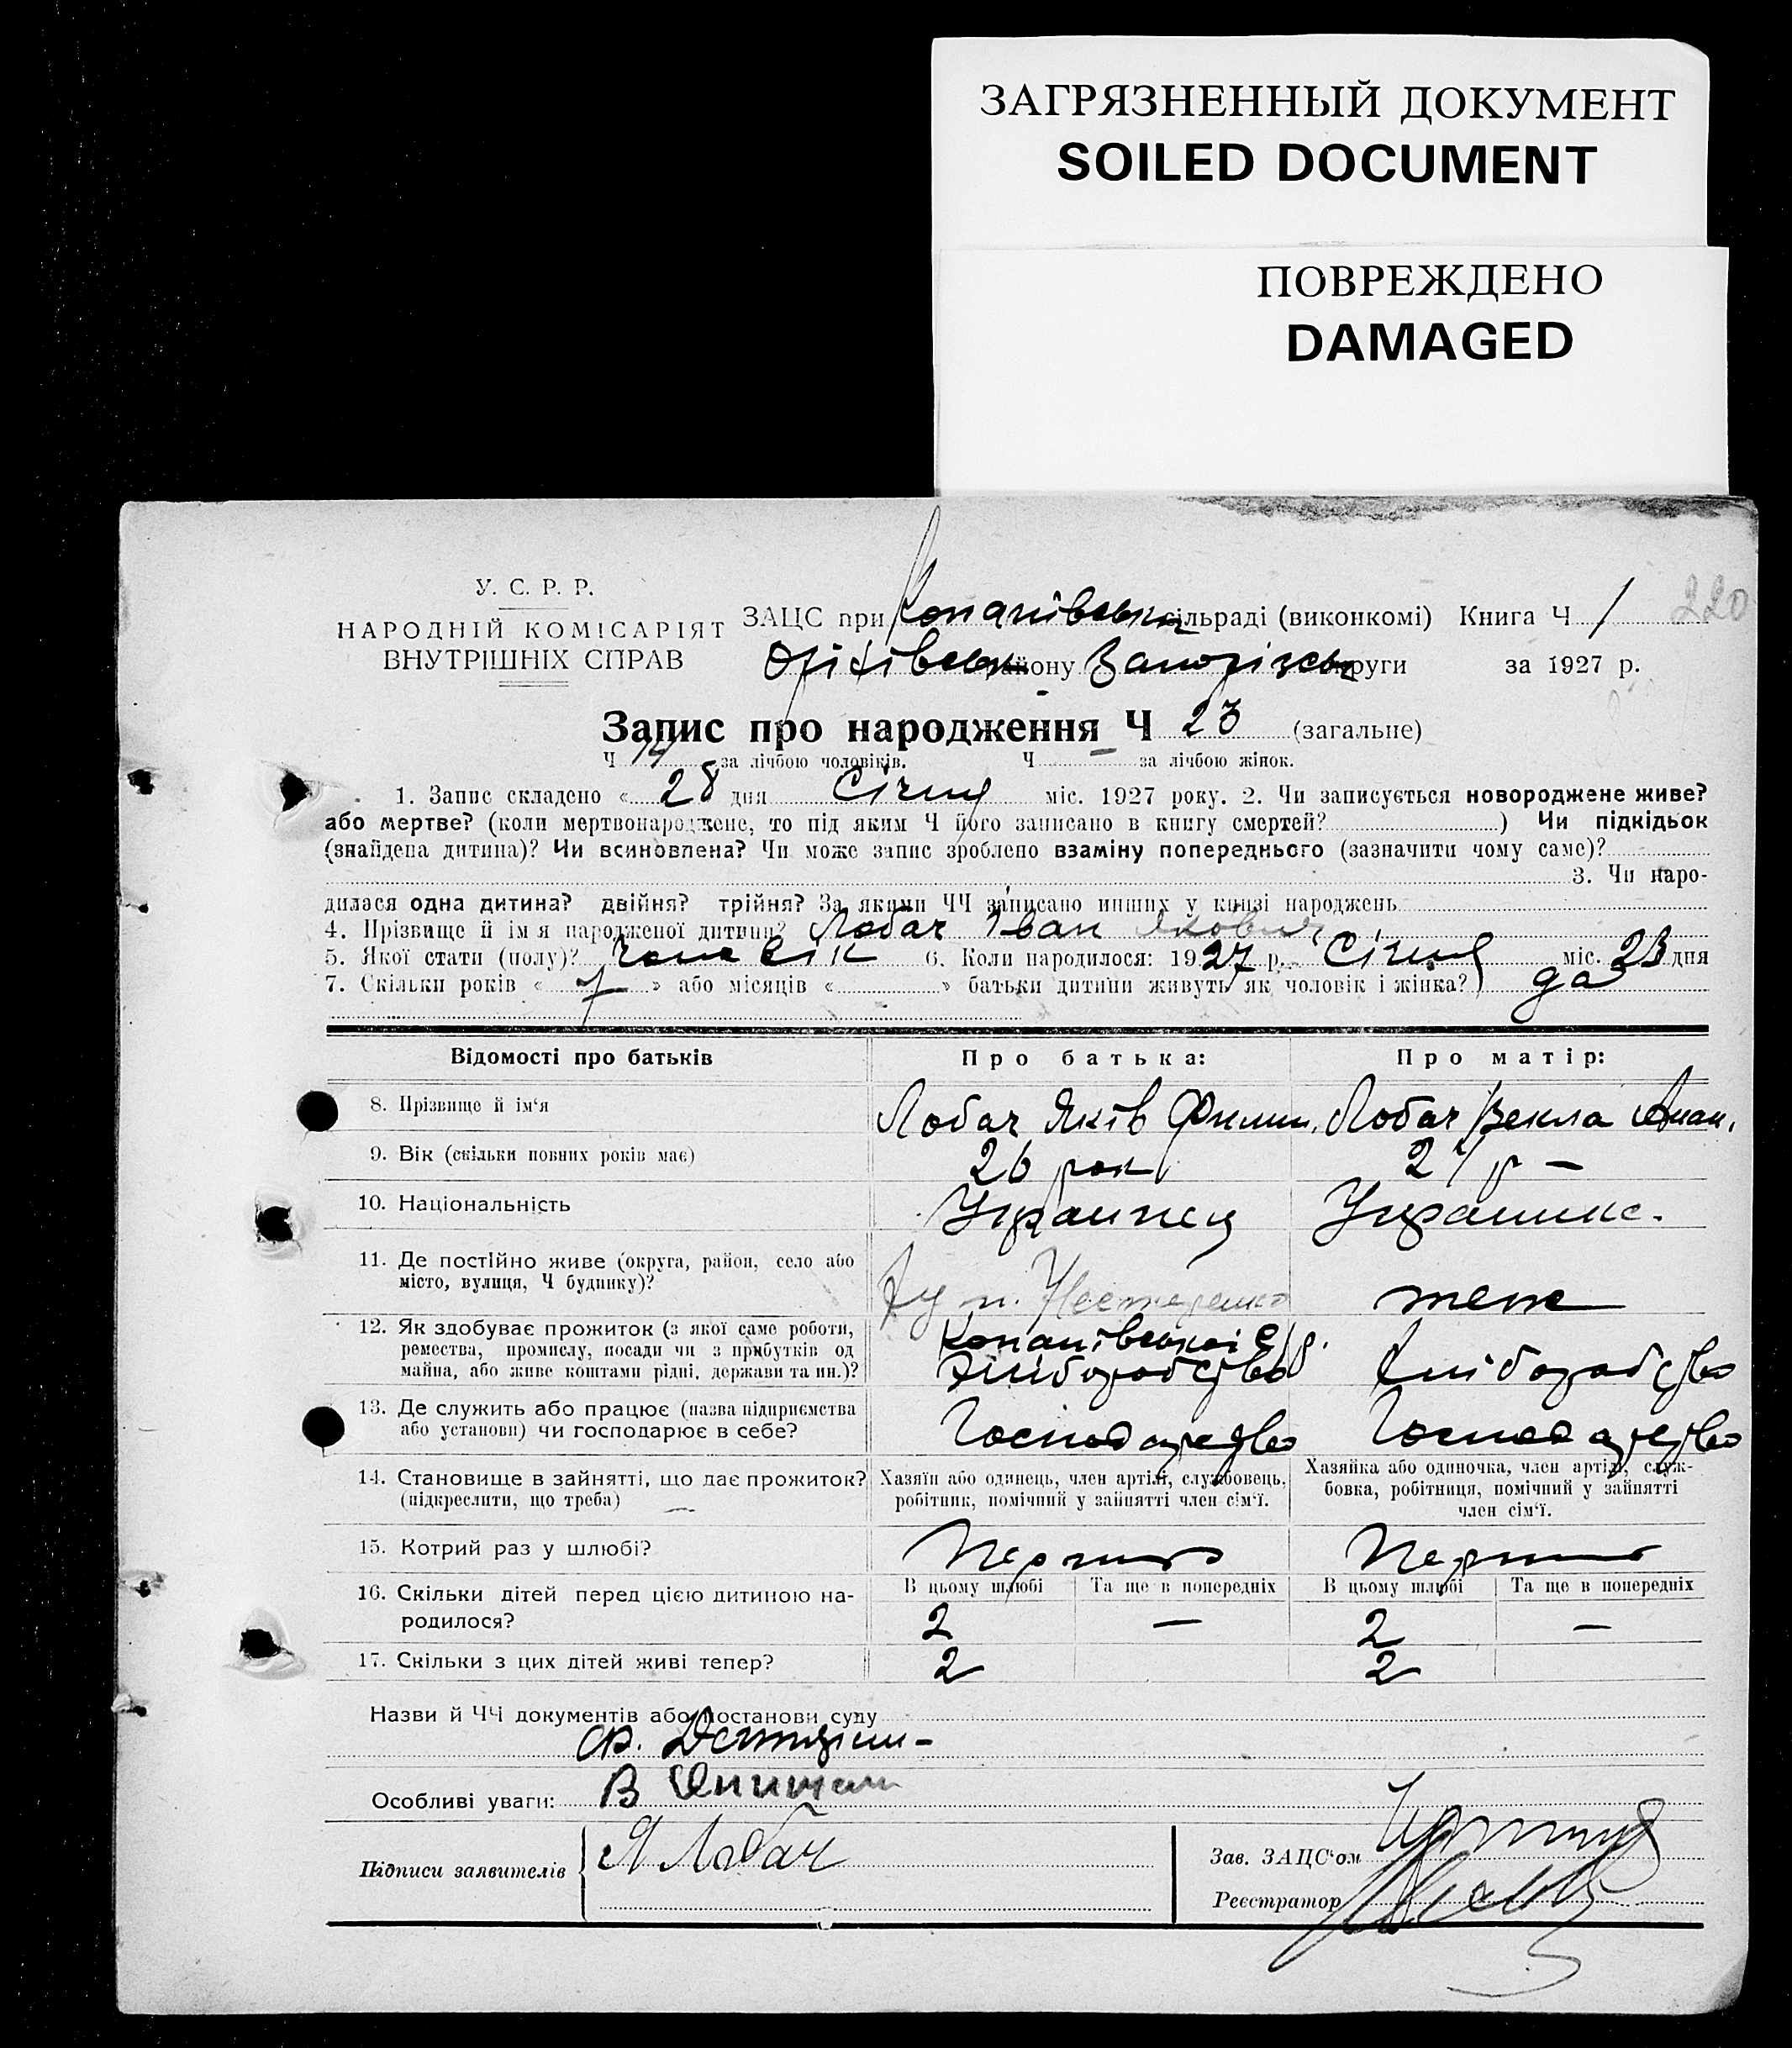 ЗАГРЯЗНЕННЫЙ ДОКУМЕНТ
SOILED DOCUMENT
ПОВРЕЖДЕНО
DAMAGED
220
У. С. Р. Р.
НАРОДНІЙ КОМІСАРІЯТ
ВНУТРІШНІХ СПРАВ
ЗАЦС при Копанівськ сільраді (виконкомі) Книга Ч 1
Оріхівськ району Запорізськ округи за 1927 р.
Запис про народження Ч 23 (загальне)
Ч 14 за лічбою чоловіків. Ч — за лічбою жінок.
1. Запис складено « 28 дня Січня міс. 1927 року. 2. Чи записується новороджене живе?
або мертве? (коли мертвонароджене, то під яким Ч його записано в книгу смертей? ) Чи підкідьок
(знайдена дитина)? Чи всиновлена? Чи може запис зроблено взаміну попереднього (зазначити чому саме)?
3. Чи наро-
дилася одна дитина? двійня? трійня? За якими ЧЧ записано инших у книзі народжень
4. Прізвище й ім'я народженої дитини? Лобач Іван Якович
5. Якої стати (полу)? Чоловік 6. Коли народилося: 1927 р. Січня міс. 23 дня
7. Скільки років « 7 » або місяців « » батьки дитини живуть як чоловік і жінка? да
Відомості про батьків Про батька: Про матір:
8. Прізвище й ім'я Лобач Яків Филип. Лобач Векла Анан.
9. Вік (скільки повних років має) 26 рок 27 р —
10. Національність Украинец Украинка.
11. Де постійно живе (округа, район, село або
місто, вулиця, Ч будинку)? Ху т. Нестеренко теж
Копанівської с/р.
12. Як здобуває прожиток (з якої саме роботи,
ремества, промислу, посади чи з прибутків од
майна, або живе коштами рідні, держави та ин.)? Хліборобство Хліборобство
13. Де служить або працює (назва підприємства
або установи) чи господарює в себе? Господарство Господарство
14. Становище в зайнятті, що дає прожиток?
(підкреслити, що треба)
Хазяїн або одинець, член артілі, службовець,
робітник, помічний у зайнятті член сім'ї.
Хазяйка або одиночка, член артілі, служ-
бовка, робітниця, помічний у зайнятті
член сім'ї.
15. Котрий раз у шлюбі? Перший Перший
В цьому шлюбі Та ще в попередніх В цьому шлюбі Та ще в попередніх
16. Скільки дітей перед цією дитиною на-
родилося? 2 — 2 —
17. Скільки з цих дітей живі тепер? 2 2
Назви й ЧЧ документів або постанови суду
Особливі уваги: В
Підписи заявителів Я Лобач
Зав. ЗАЦС'ом
Реєстратор